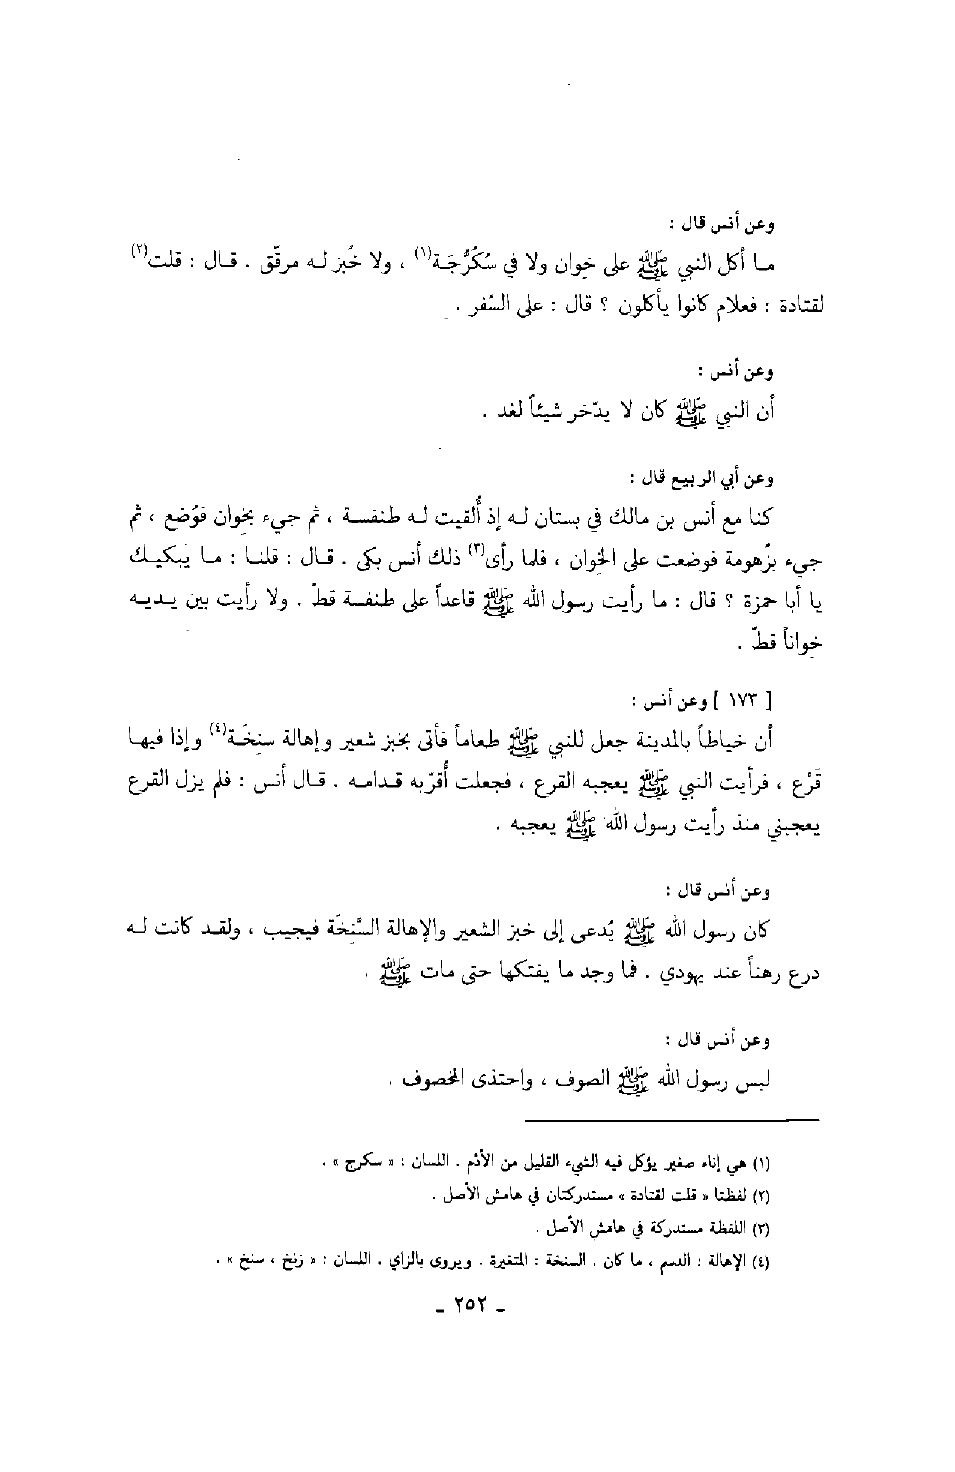 وعن أنس قال :
ما أكل النبي ﷺ على خِوان ولا في سُكُرُّجَة(١) ، ولا خُبز له مرقّق . قال : قلت(٢)
لقتادة : فعلام كانوا يأكلون ؟ قال : على السُّفر .
وعن أنس :
أن النبي ﷺ كان لا يدّخر شيئاً لغد .
وعن أبي الربيع قال :
كنا مع أنس بن مالك في بستان له إذ أُلقيت له طنفسة ، ثم جيء بخوان فوُضع ، ثم
جيء بزُهومة فوضعت على الخوان ، فلما رأى(٣) ذلك أنس بكى . قال : قلنا : ما يُبكيك
يا أبا حمزة ؟ قال : ما رأيت رسول الله ﷺ قاعداً على طنفسة قطّ . ولا رأيت بين يديه
خواناً قطّ .
[ ١٧٣ ] وعن أنس :
أن خياطاً بالمدينة جعل للنبي ﷺ طعاماً فأتى بخبز شعير وإهالة سنِخَة(٤) وإذا فيها
قَرْع ، فرأيت النبي ﷺ يعجبه القرع ، فجعلت أُقرّبه قدامه . قال أنس : فلم يزل القرع
يعجبني منذ رأيت رسول الله ﷺ يعجبه .
وعن أنس قال :
كان رسول الله ﷺ يُدعى إلى خبز الشعير والإهالة السَّنِخَة فيجيب ، ولقد كانت له
درع رهناً عند يهودي . فما وجد ما يفتكها حتى مات ﷺ .
وعن أنس قال :
لبس رسول الله ﷺ الصوف ، واحتذى المخصوف .
(١) هي إناء صغير يؤكل فيه الشيء القليل من الأدُم . اللسان : « سكرج » .
(٢) لفظتا « قلت لقتادة » مستدركتان في هامش الأصل .
(٣) اللفظة مستدركة في هامش الأصل .
(٤) الإهالة : الدسم ، ما كان . السنخة : المتغيرة . ويروى بالزاي . اللسان : « زنخ ، سنخ » .
ـ ٢٥٢ ـ